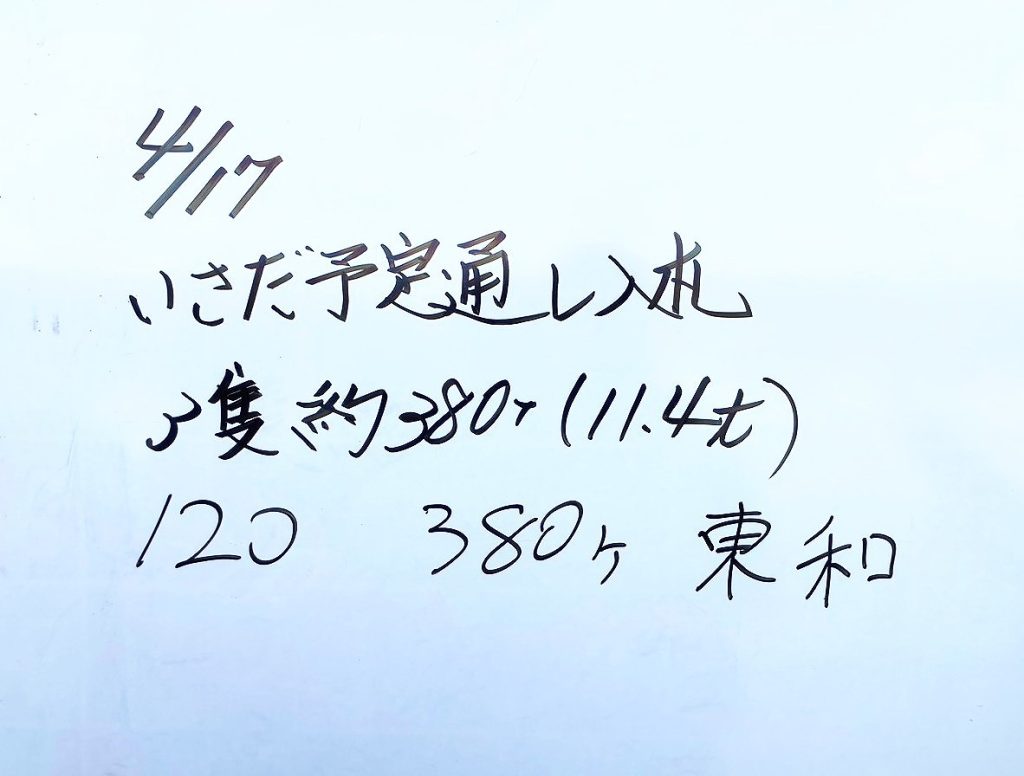 4/17
いさだ予定通し入札
3隻約380ヶ(11.4t)
120 380ヶ 東和